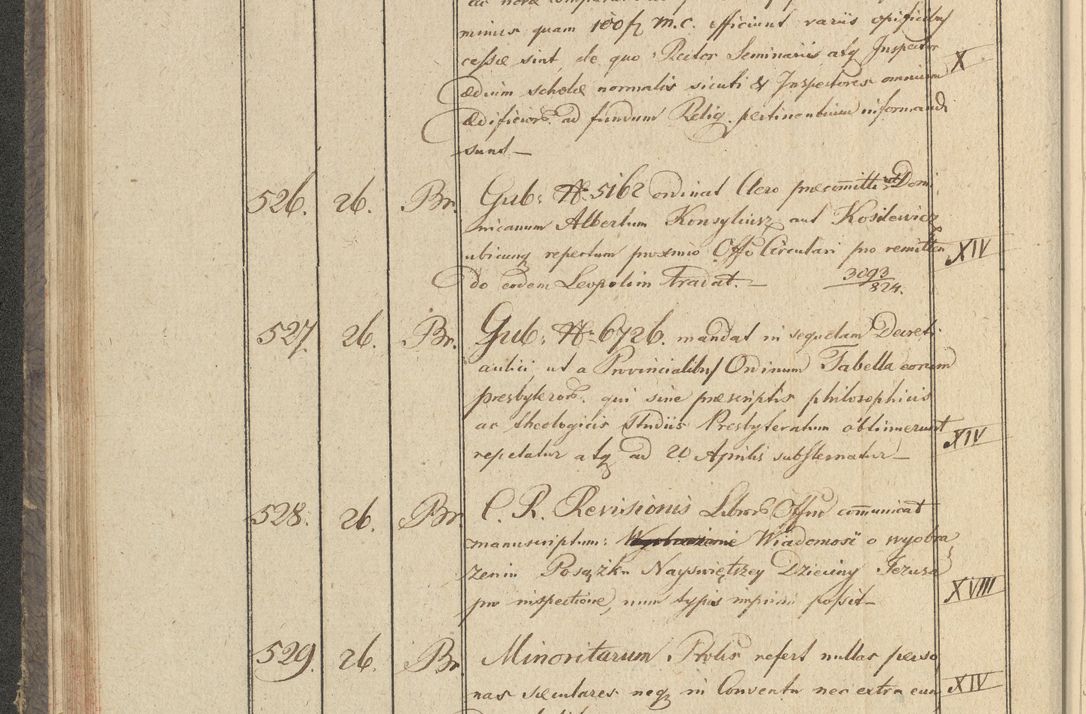 minus quam 100 f m.c. efficiunt variis opificibus
cessæ sint, de quo Rector Seminarii atq Inspector X
ædium scholæ normalis sicuti & Inspectores omnium
ædificior. ad fundum Relig. pertinentium informandi
sunt
526. 26. Br. Gub: N 5162 ordinat Clero præcommitti Domi
nicanum Albertum Konsyliusz aut Kosilewicz
ubicunq repertum proximo Offo Circulari pro remitten XIV
do eodem Leopolim tradat. 3093/824.
527 26. Br. Gub: N 6726. mandat in sequelam Decreti
aulici, ut a Provincialibus Ordinum Tabella eorum
presbyteror. qui sine præscriptis philosophicis
ac theologicis studiis Presbyteratum obtinuerunt XIV
repetatur atq ad 20 Aprilis substernatur
528. 26. Br. C. R. Revisionis Libror Offm communicat
manuscriptum: Wiadomosć o wyobra
żeniu Posążku Nayświętszey Dzieciny Jezusa
pro inspectione, num typis imprimi possit XVIII
529. 26. Br. Minoritarum Prolis refert nullas perso
nas sæculares neq in Conventu nec extra eum XIV